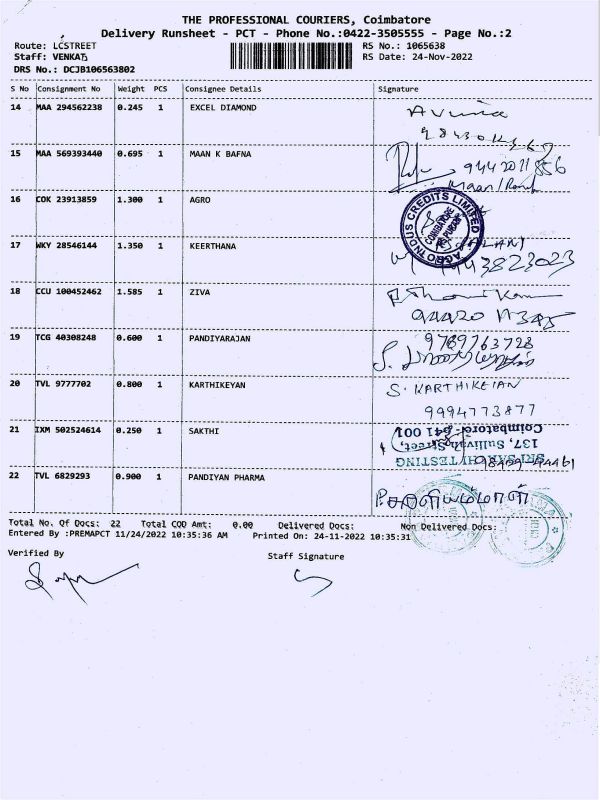 THE PROFESSIONAL COURIERS, Coimbatore
Delivery Runsheet - PCT - Phone No.:0422-3505555 - Page No.:2
Route: LCSTREET RS No.: 1065638
Staff: VENKAT RS Date: 24-Nov-2022
DRS No.: DCJB106563802
S No Consignment No Weight PCS Consignee Details Signature
14 MAA 294562238 0.245 1 EXCEL DIAMOND
15 MAA 569393440 0.695 1 MAAN K BAFNA
16 COK 23913859 1.300 1 AGRO
AGRO INDUS CREDITS LIMITED
17 WKY 28546144 1.350 1 KEERTHANA
9443823023
18 CCU 100452462 1.585 1 ZIVA
19 TCG 40308248 0.600 1 PANDIYARAJAN 9789763728
20 TVL 9777702 0.800 1 KARTHIKEYAN S. KARTHIKEIAN
9994773877
21 IXM 502524614 0.250 1 SAKTHI
SRI SAKTHI TESTING
137, Sullivan Street,
Coimbatore - 641 001
22 TVL 6829293 0.900 1 PANDIYAN PHARMA
Total No. Of Docs: 22 Total COD Amt: 0.00 Delivered Docs: Non Delivered Docs:
Entered By :PREMAPCT 11/24/2022 10:35:36 AM Printed On: 24-11-2022 10:35:31
Verified By Staff Signature